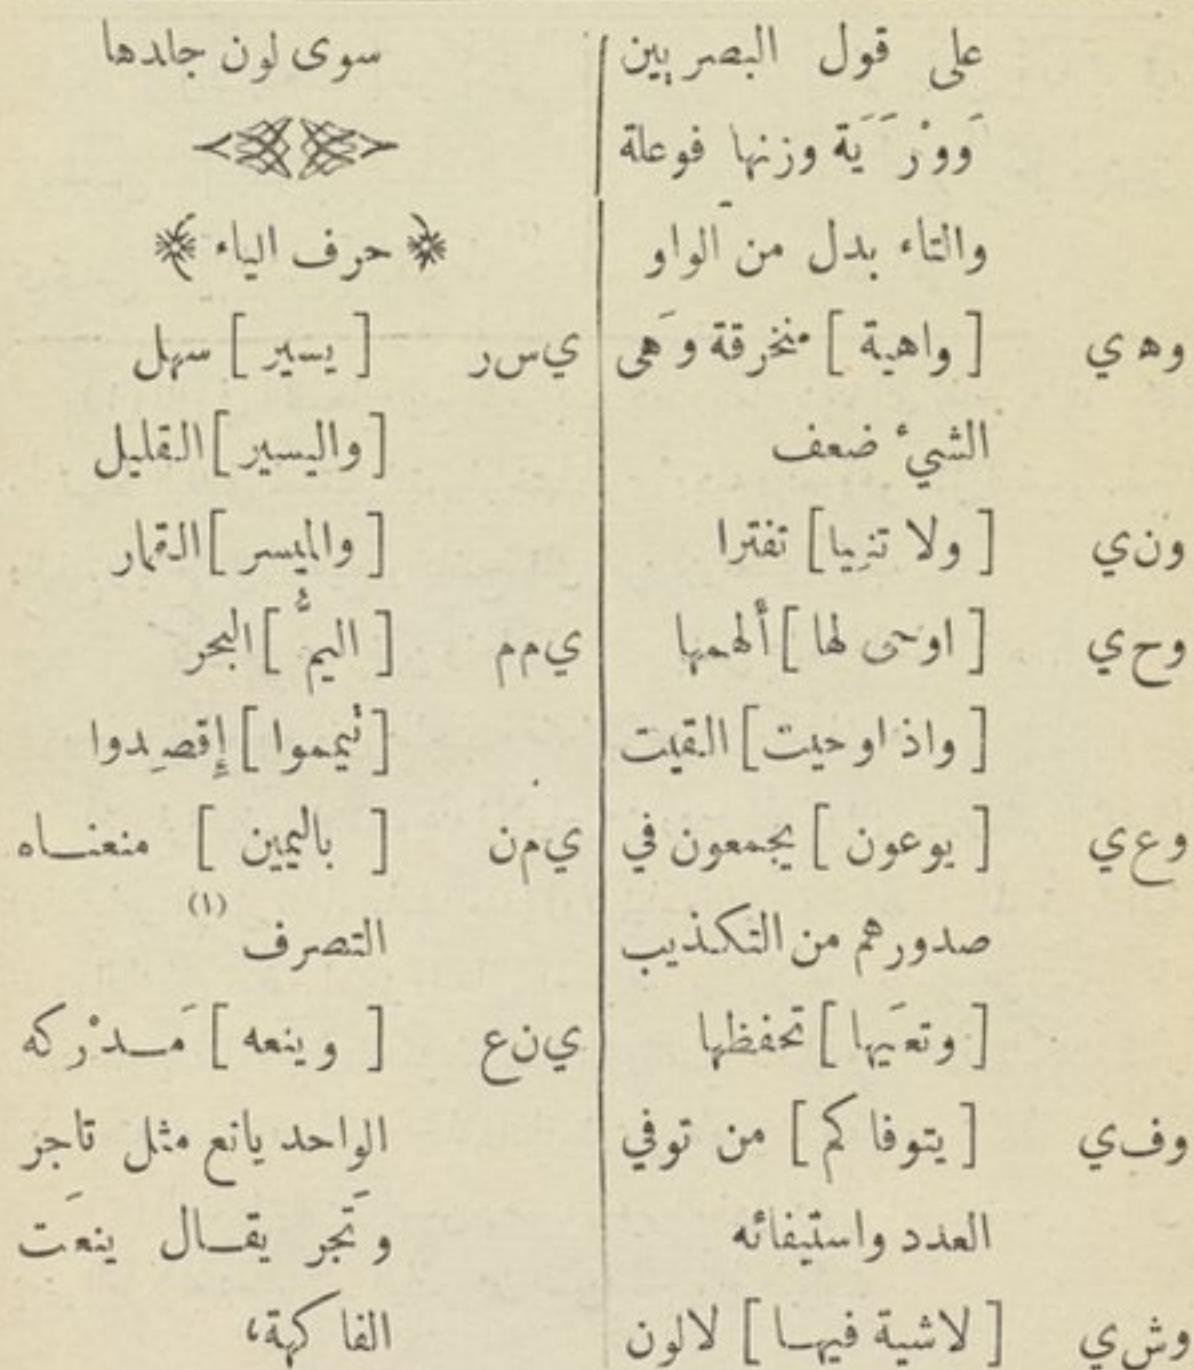 على قول البصريين
وَوْرَيَة وزنها فوعلة
والتاء بدل من الواو
وه‍ ي [ واهية ] منخرقة وَهى
الشيء ضعف
ون ي [ ولا تنِيا ] تفترا
وح ي [ اوحى لها ] ألهمها
[ واذ اوحيت ] القيت
وع ي [ يوعون ] يجمعون في
صدورهم من التكذيب
[ وتعَيها ] تحفظها
وف ي [ يتوفاكم ] من توفي
العدد واستيفائه
وش ي [ لاشية فيها ] لالون
سوى لون جلدها
﴿ حرف الياء ﴾
ي س ر [ يسير ] سهل
[ واليسير ] القليل
[ والميسر ] القمار
ي م م [ اليمُّ ] البحر
[ تيمموا ] إِقصِدوا
ي م ن [ باليمين ] منعنــاه
التصرف (١)
ي ن ع [ وينعه ] مَــدْركه
الواحد يانع مثل تاجر
وتَجر يقــال ينعَت
الفاكهة،